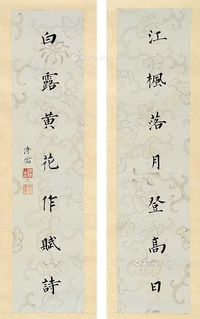 江楓落月登高日
白露黃花作賦詩
溥儒